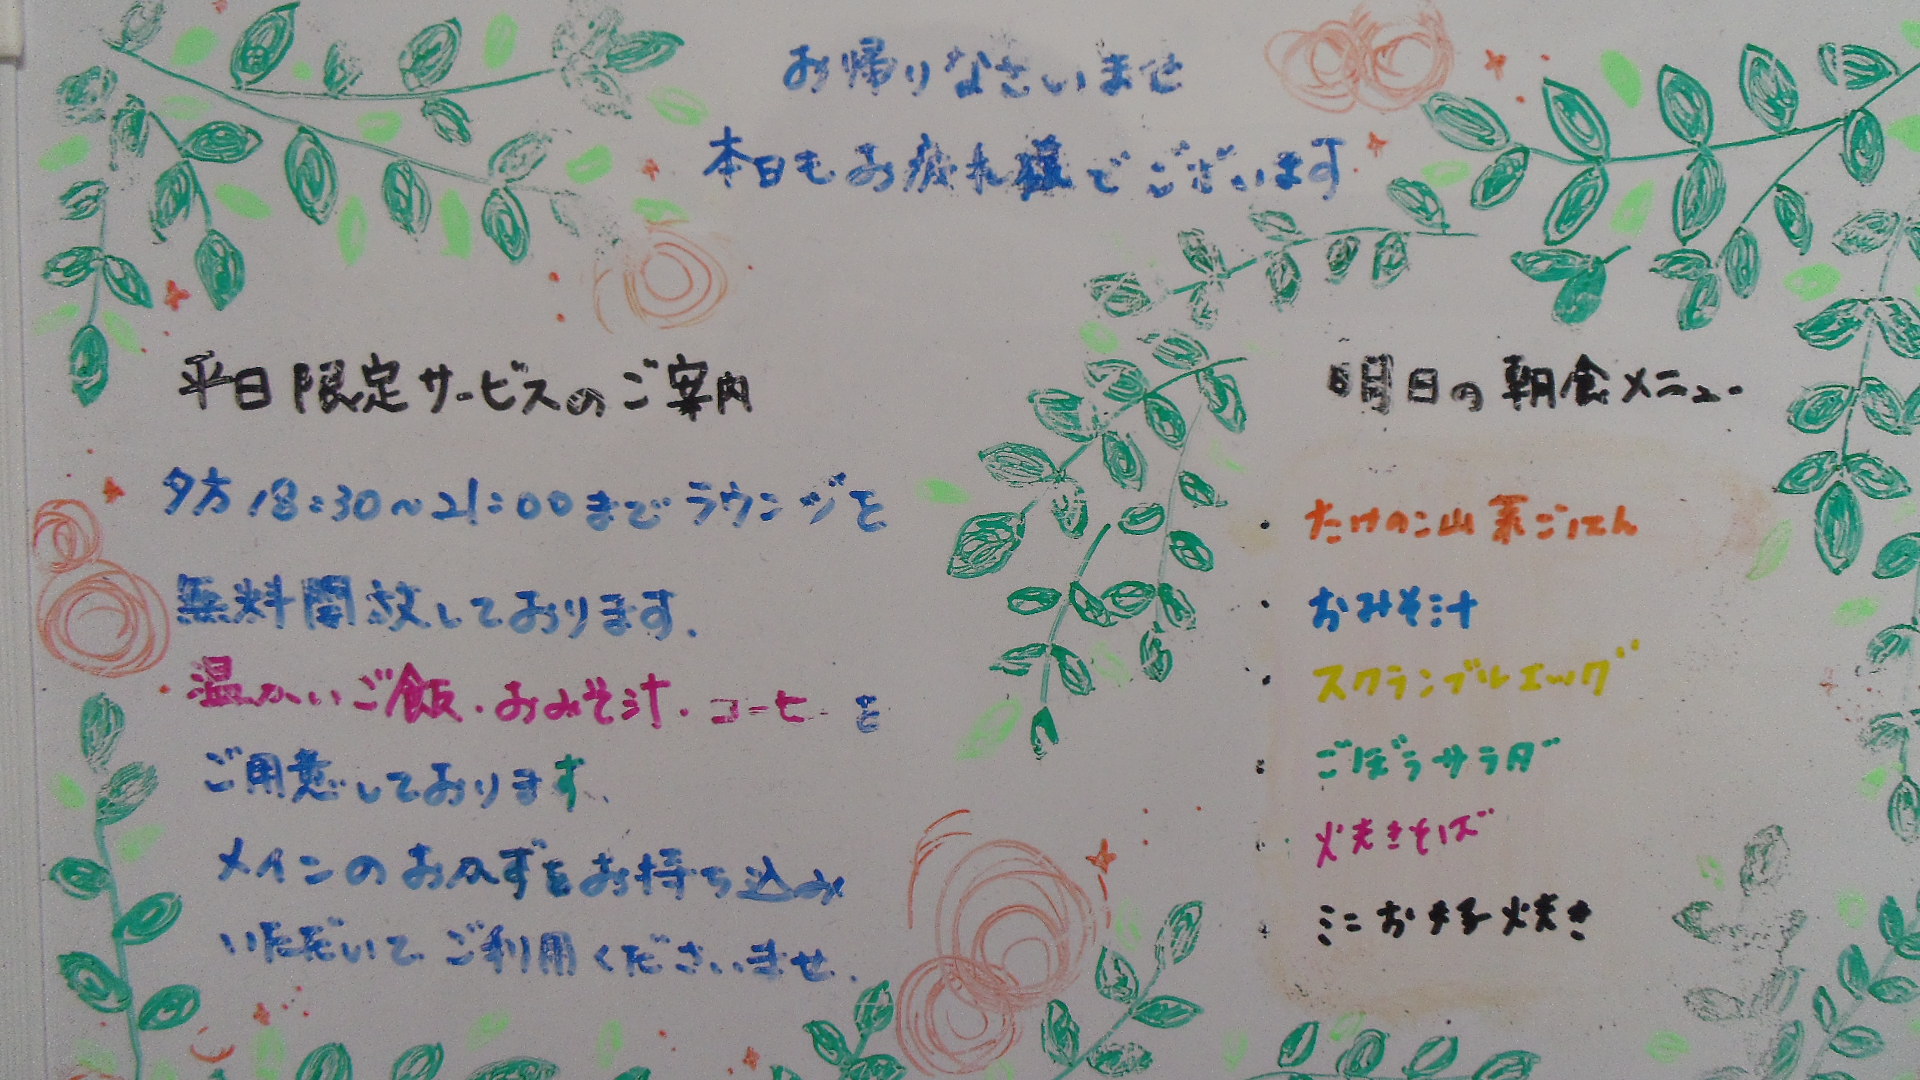 お帰りなさいませ
本日もお疲れ様でございます
平日限定サービスのご案内
夕方18:30〜21:00までラウンジを
無料開放しております。
温かいご飯・おみそ汁・コーヒーを
ご用意しております。
メインのおかずをお持ち込み
いただいてご利用くださいませ。
明日の朝食メニュー
・たけのこ山菜ごはん
・おみそ汁
・スクランブルエッグ
・ごぼうサラダ
・焼きそば
・ミニお好み焼き